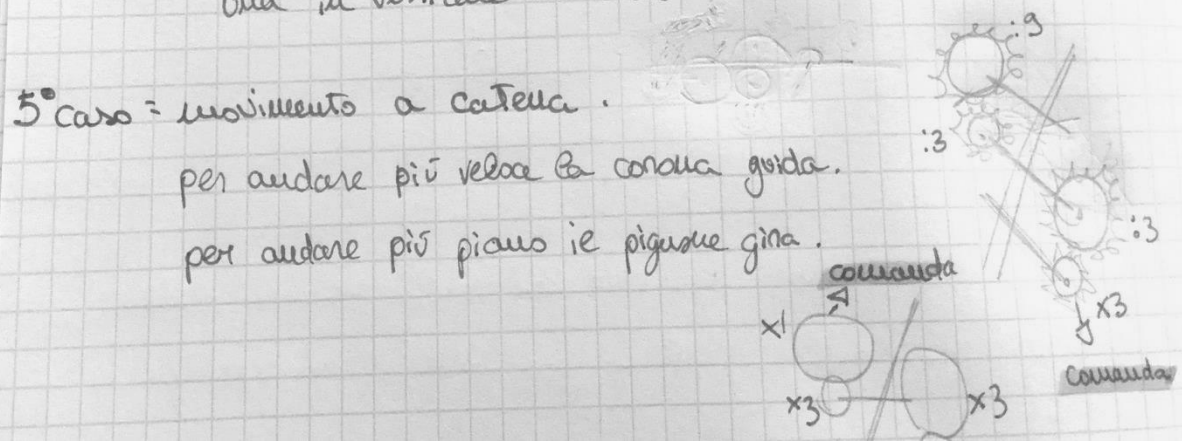 5° caso = movimento a catena.
per andare più veloce la corona guida.
per andare più piano ie pignone gira.
:9
:3
:3
x3
comanda
comanda
x1
x3
x3